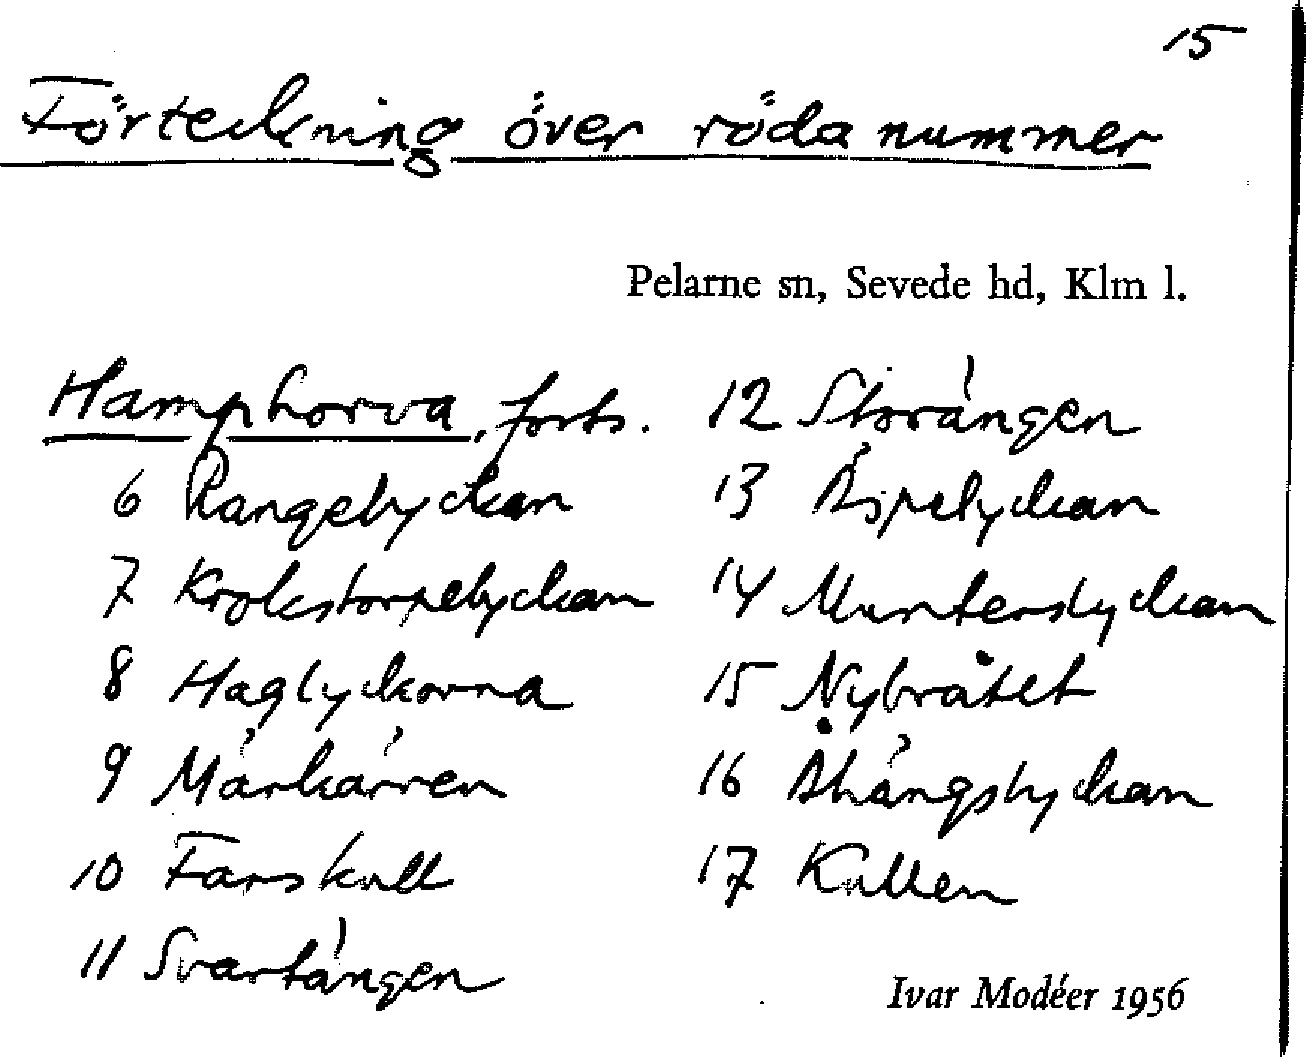 15
Förteckning över röda nummer
Pelarne sn, Sevede hd, Klm l.
Hamphorva, forts.
6 Rangelyckan
7 Krokstorpelyckan
8 Haglyckorna
9 Märkärren
10 Farskull
11 Svartängen
12 Storängen
13 Äspelyckan
14 Munterslyckan
15 Nybråtet
16 Åhängslyckan
17 Kullen
Ivar Modéer 1956